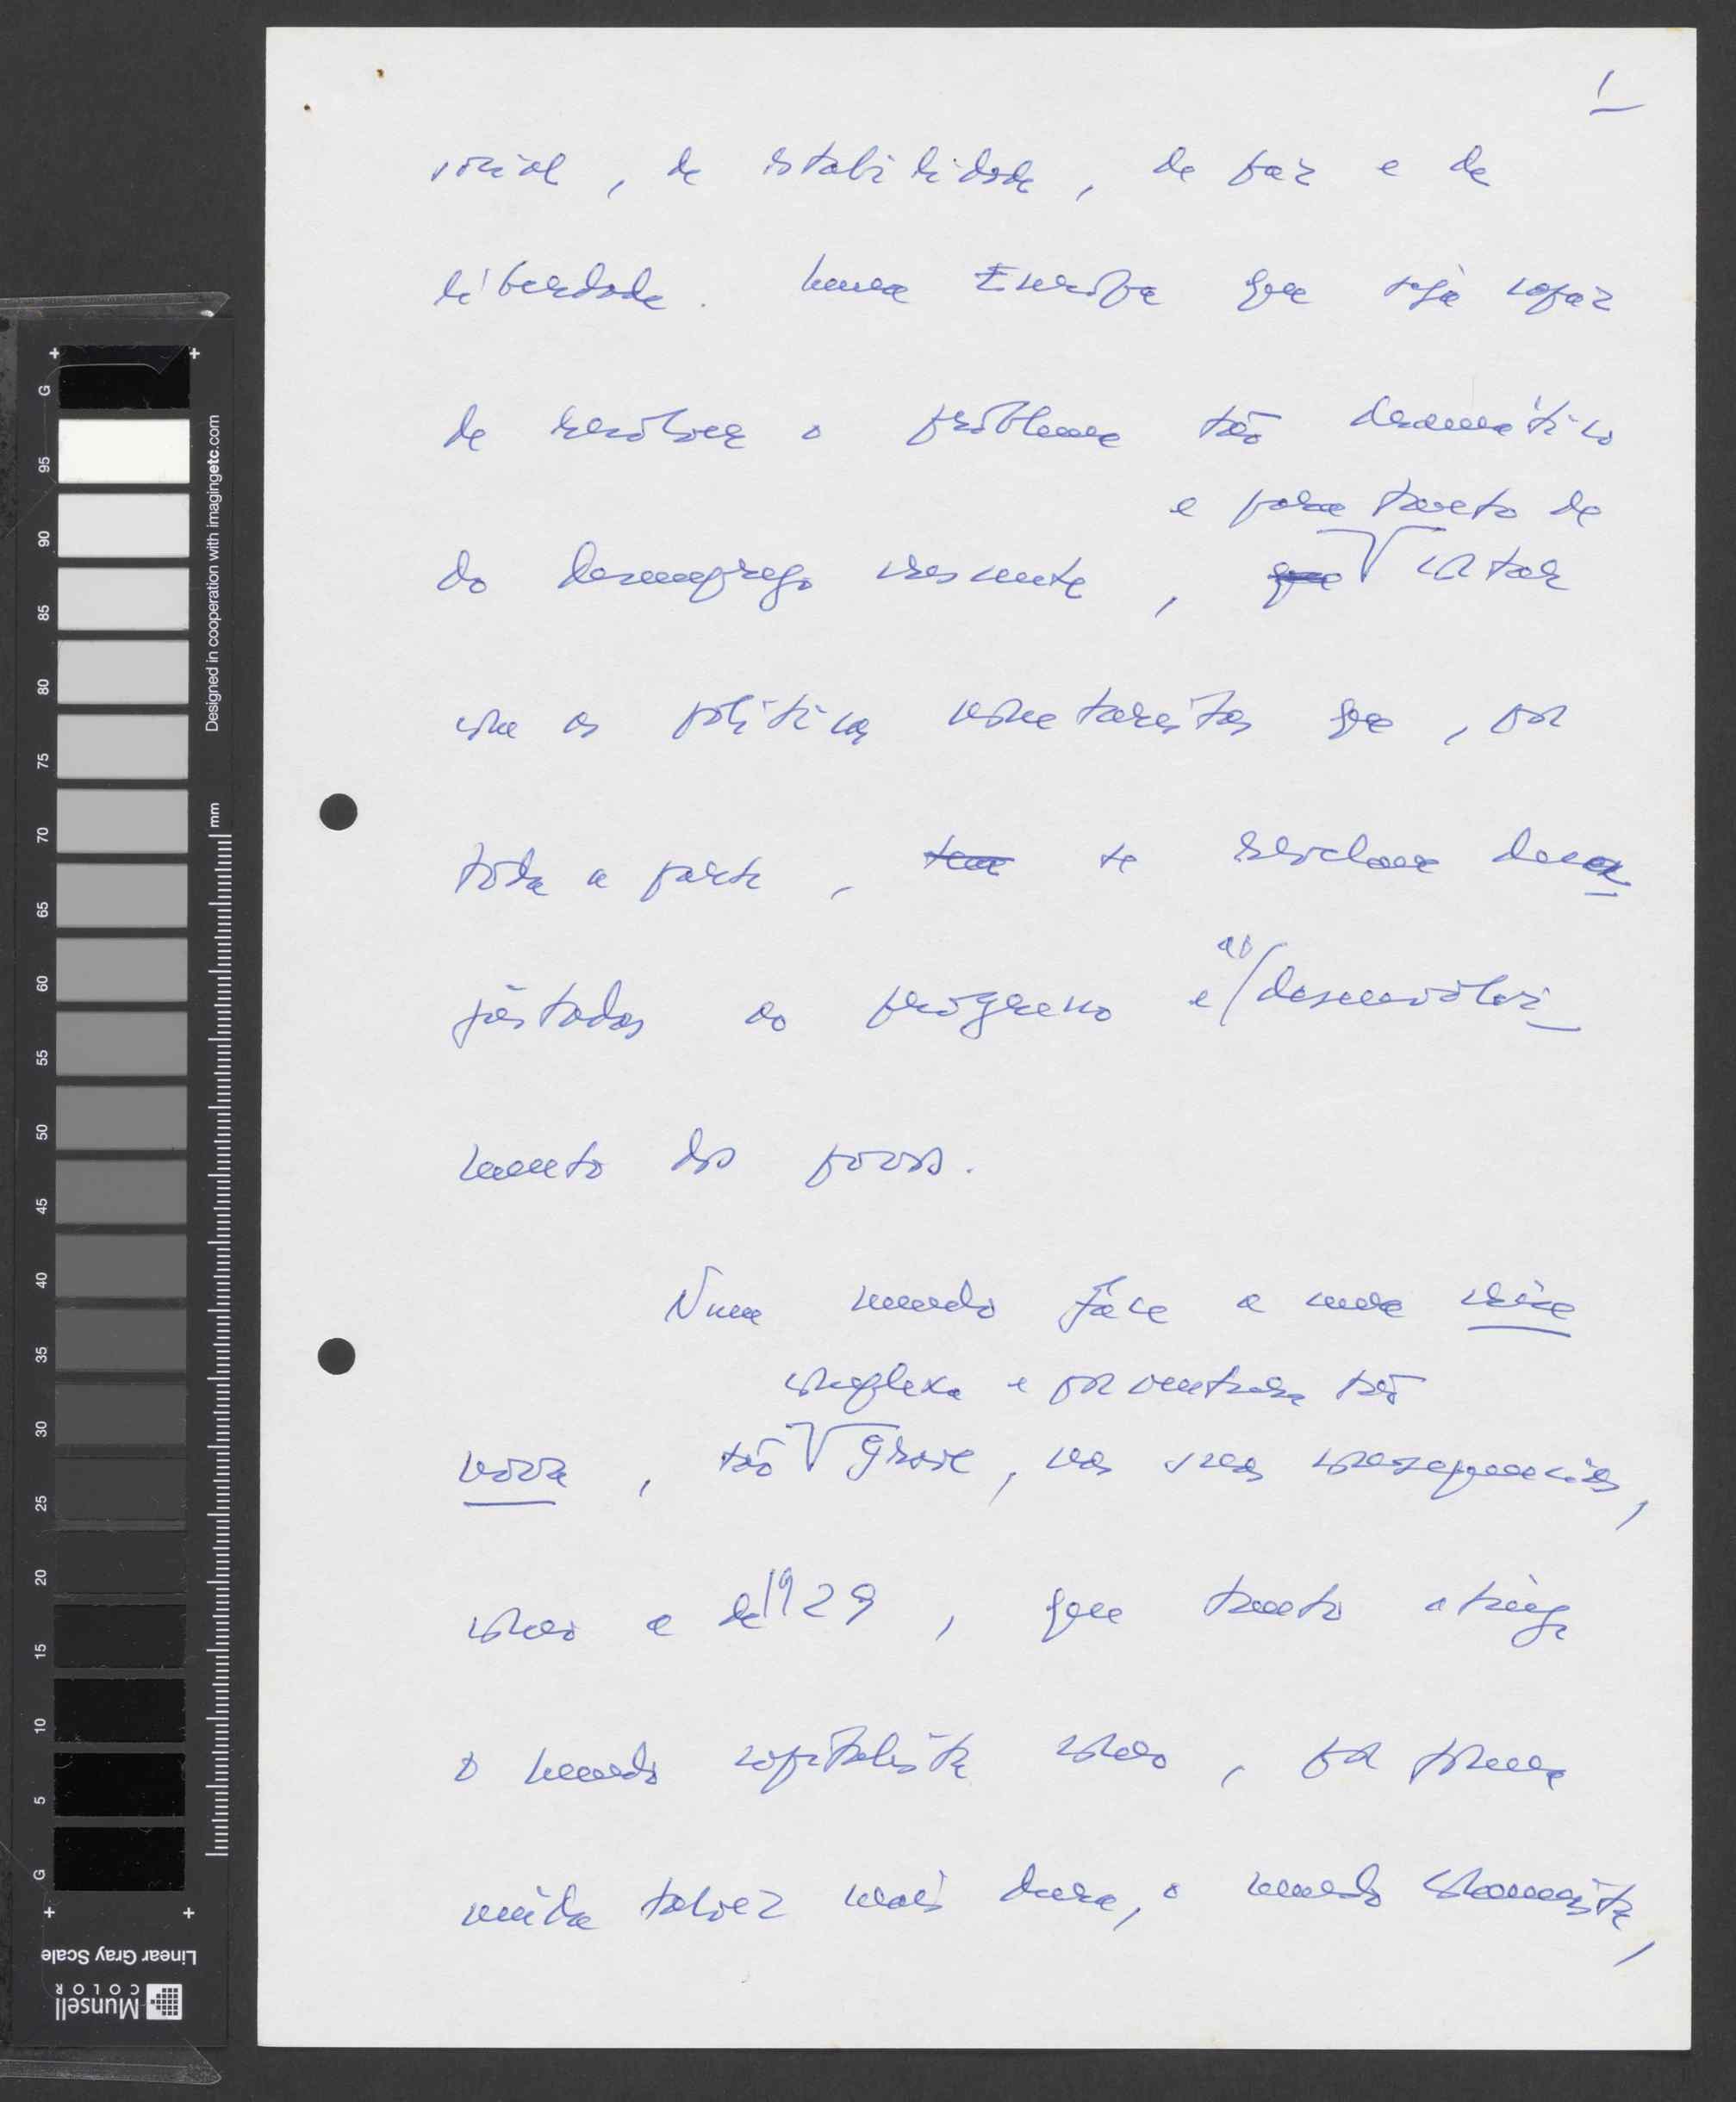 1
social, de estabilidade, de paz e de
liberdade. Numa Europa que seja capaz
de resolver o problema tão dramático
e para tanto de
do desemprego crescente, que cortar
com as políticas monetaristas que, por
toda a parte, tem se revelam desa
justadas ao progresso e ao desenvolvi_
mento dos povos.
Num mundo face a uma crise
complexa e porventura tão
nova, tão grave, nas suas consequências,
como a de 1929, que tanto atinge
o mundo capitalista como, por forma
ainda talvez mais dura, o mundo comunista,
G
95
90
85
80
75
70
65
60
55
50
45
40
35
30
25
20
15
10
5
G
mm
Designed in cooperation with imagingetc.com
Linear Gray Scale
Munsell
COLOR